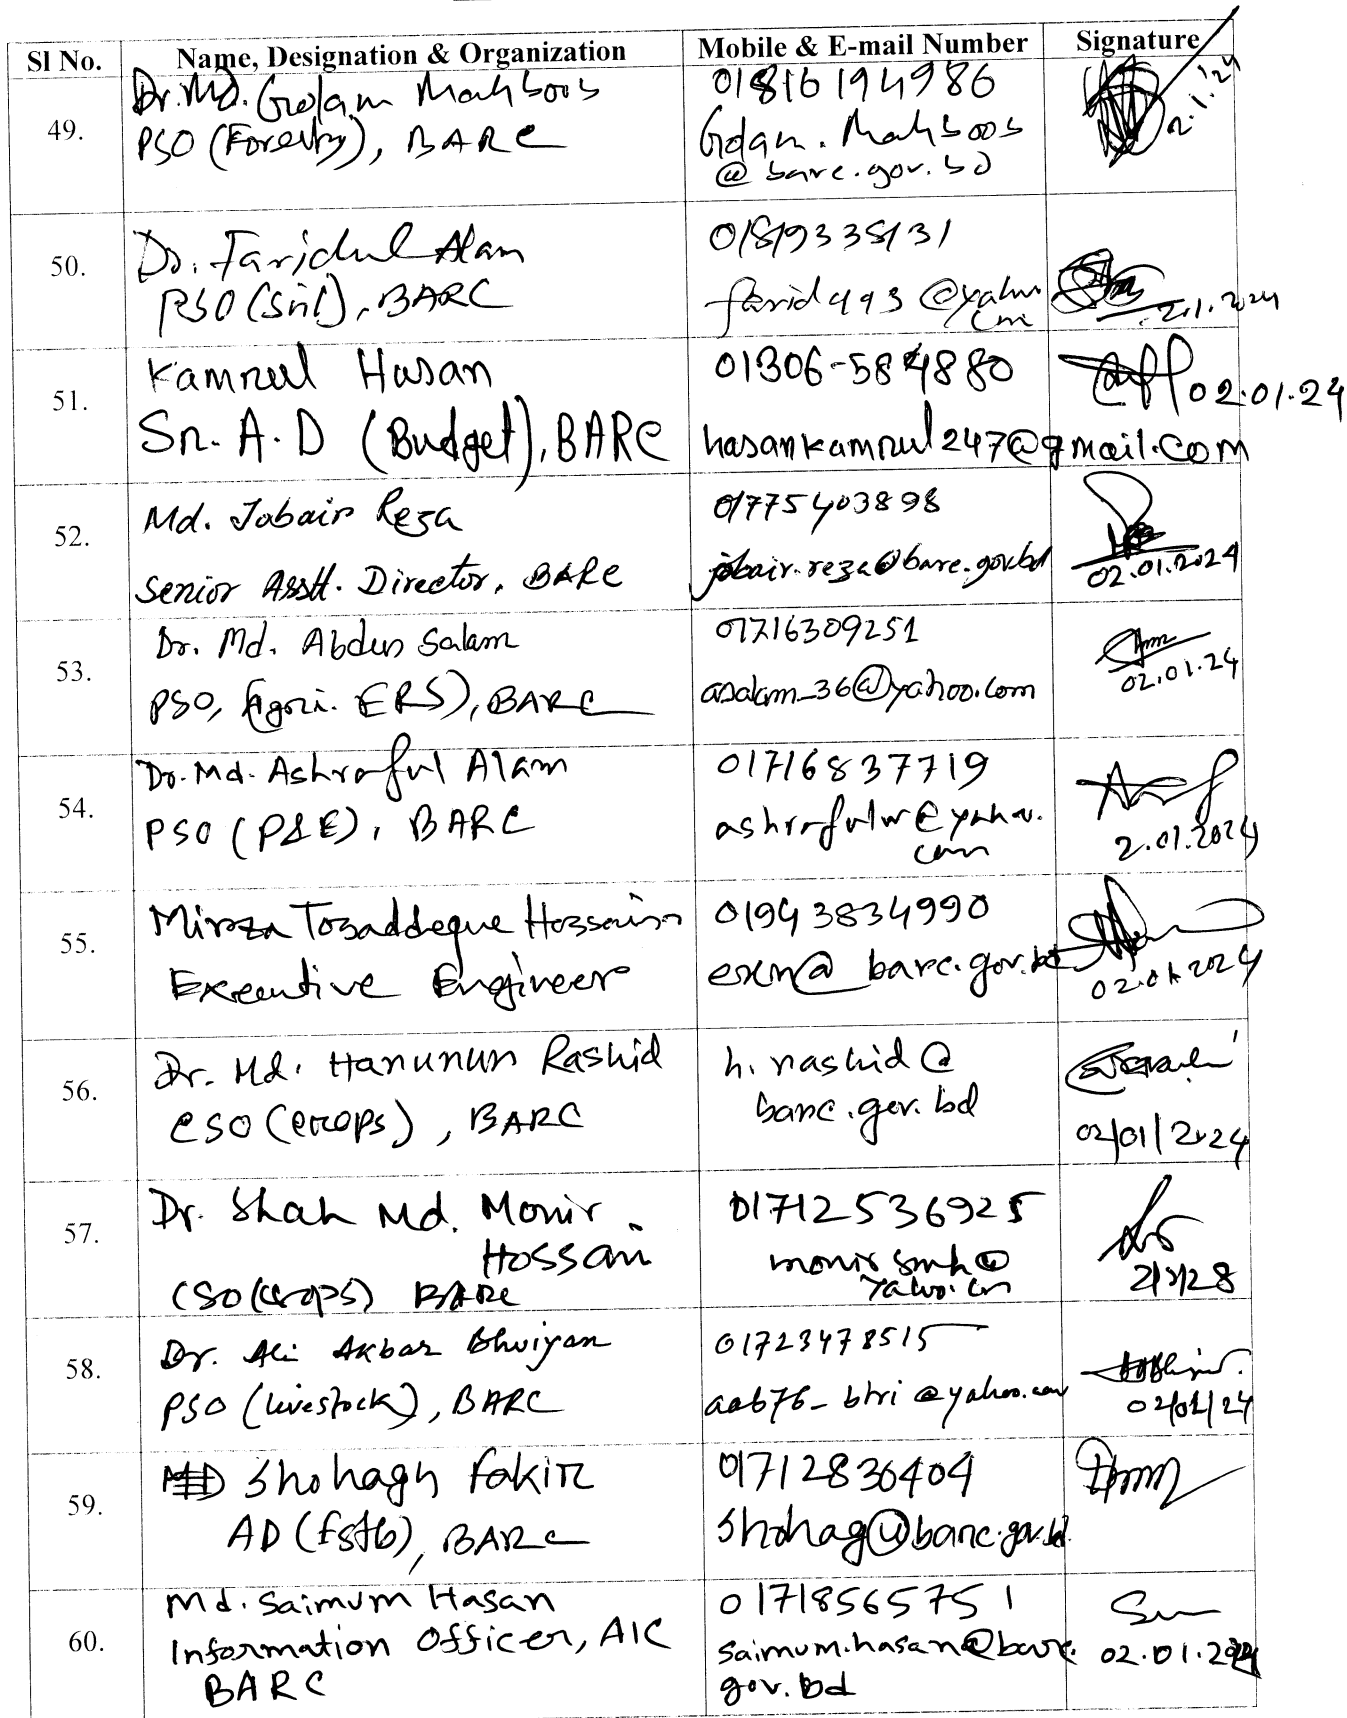 Sl No. Name, Designation & Organization Mobile & E-mail Number Signature
49.
Dr. Md. Golam Mahboob
PSO (Forestry), BARC
01816194986
Golam. Mahboob
@ barc.gov.bd
2.1.'24
50.
Dr. Faridul Alam
PSO (Soil), BARC
01819335131
farid493@yahoo
com
2.1.2024
51.
Kamrul Hasan
Sr. A.D (Budget), BARC
01306-584880
hasankamrul247@gmail.com
02.01.24
52.
Md. Jobair Reza
Senior Asstt. Director, BARC
01775403898
jobair.reza@barc.gov.bd
02.01.2024
53.
Dr. Md. Abdus Salam
PSO, (Agri. ERS), BARC
01716309251
asalam_36@yahoo.com
02.01.24
54.
Dr. Md. Ashraful Alam
PSO (P&E), BARC
01716837719
ashrafulw@yahoo.
com
2.01.2024
55.
Mirza Tosaddeque Hossain
Executive Engineer
01943834990
exen@barc.gov.bd
02.01.2024
56.
Dr. Md. Harunur Rashid
CSO (Crops), BARC
h.rashid@
barc.gov.bd
02/01/2024
57.
Dr. Shah Md. Monir
Hossain
CSO (Crops) BARC
01712536925
monirsmh@
Yahoo.com
58.
Dr. Ali Akbar Bhuiyan
PSO (Livestock), BARC
01723478515
aab76_blri@yahoo.com
02/01/24
59.
MD Shohagh Fakir
AD (fstb), BARC
01712830404
shohag@barc.gov.bd
60.
Md. Saimum Hasan
Information Officer, AIC
BARC
01718565751
saimum.hasan@barc.
gov.bd
02.01.2024